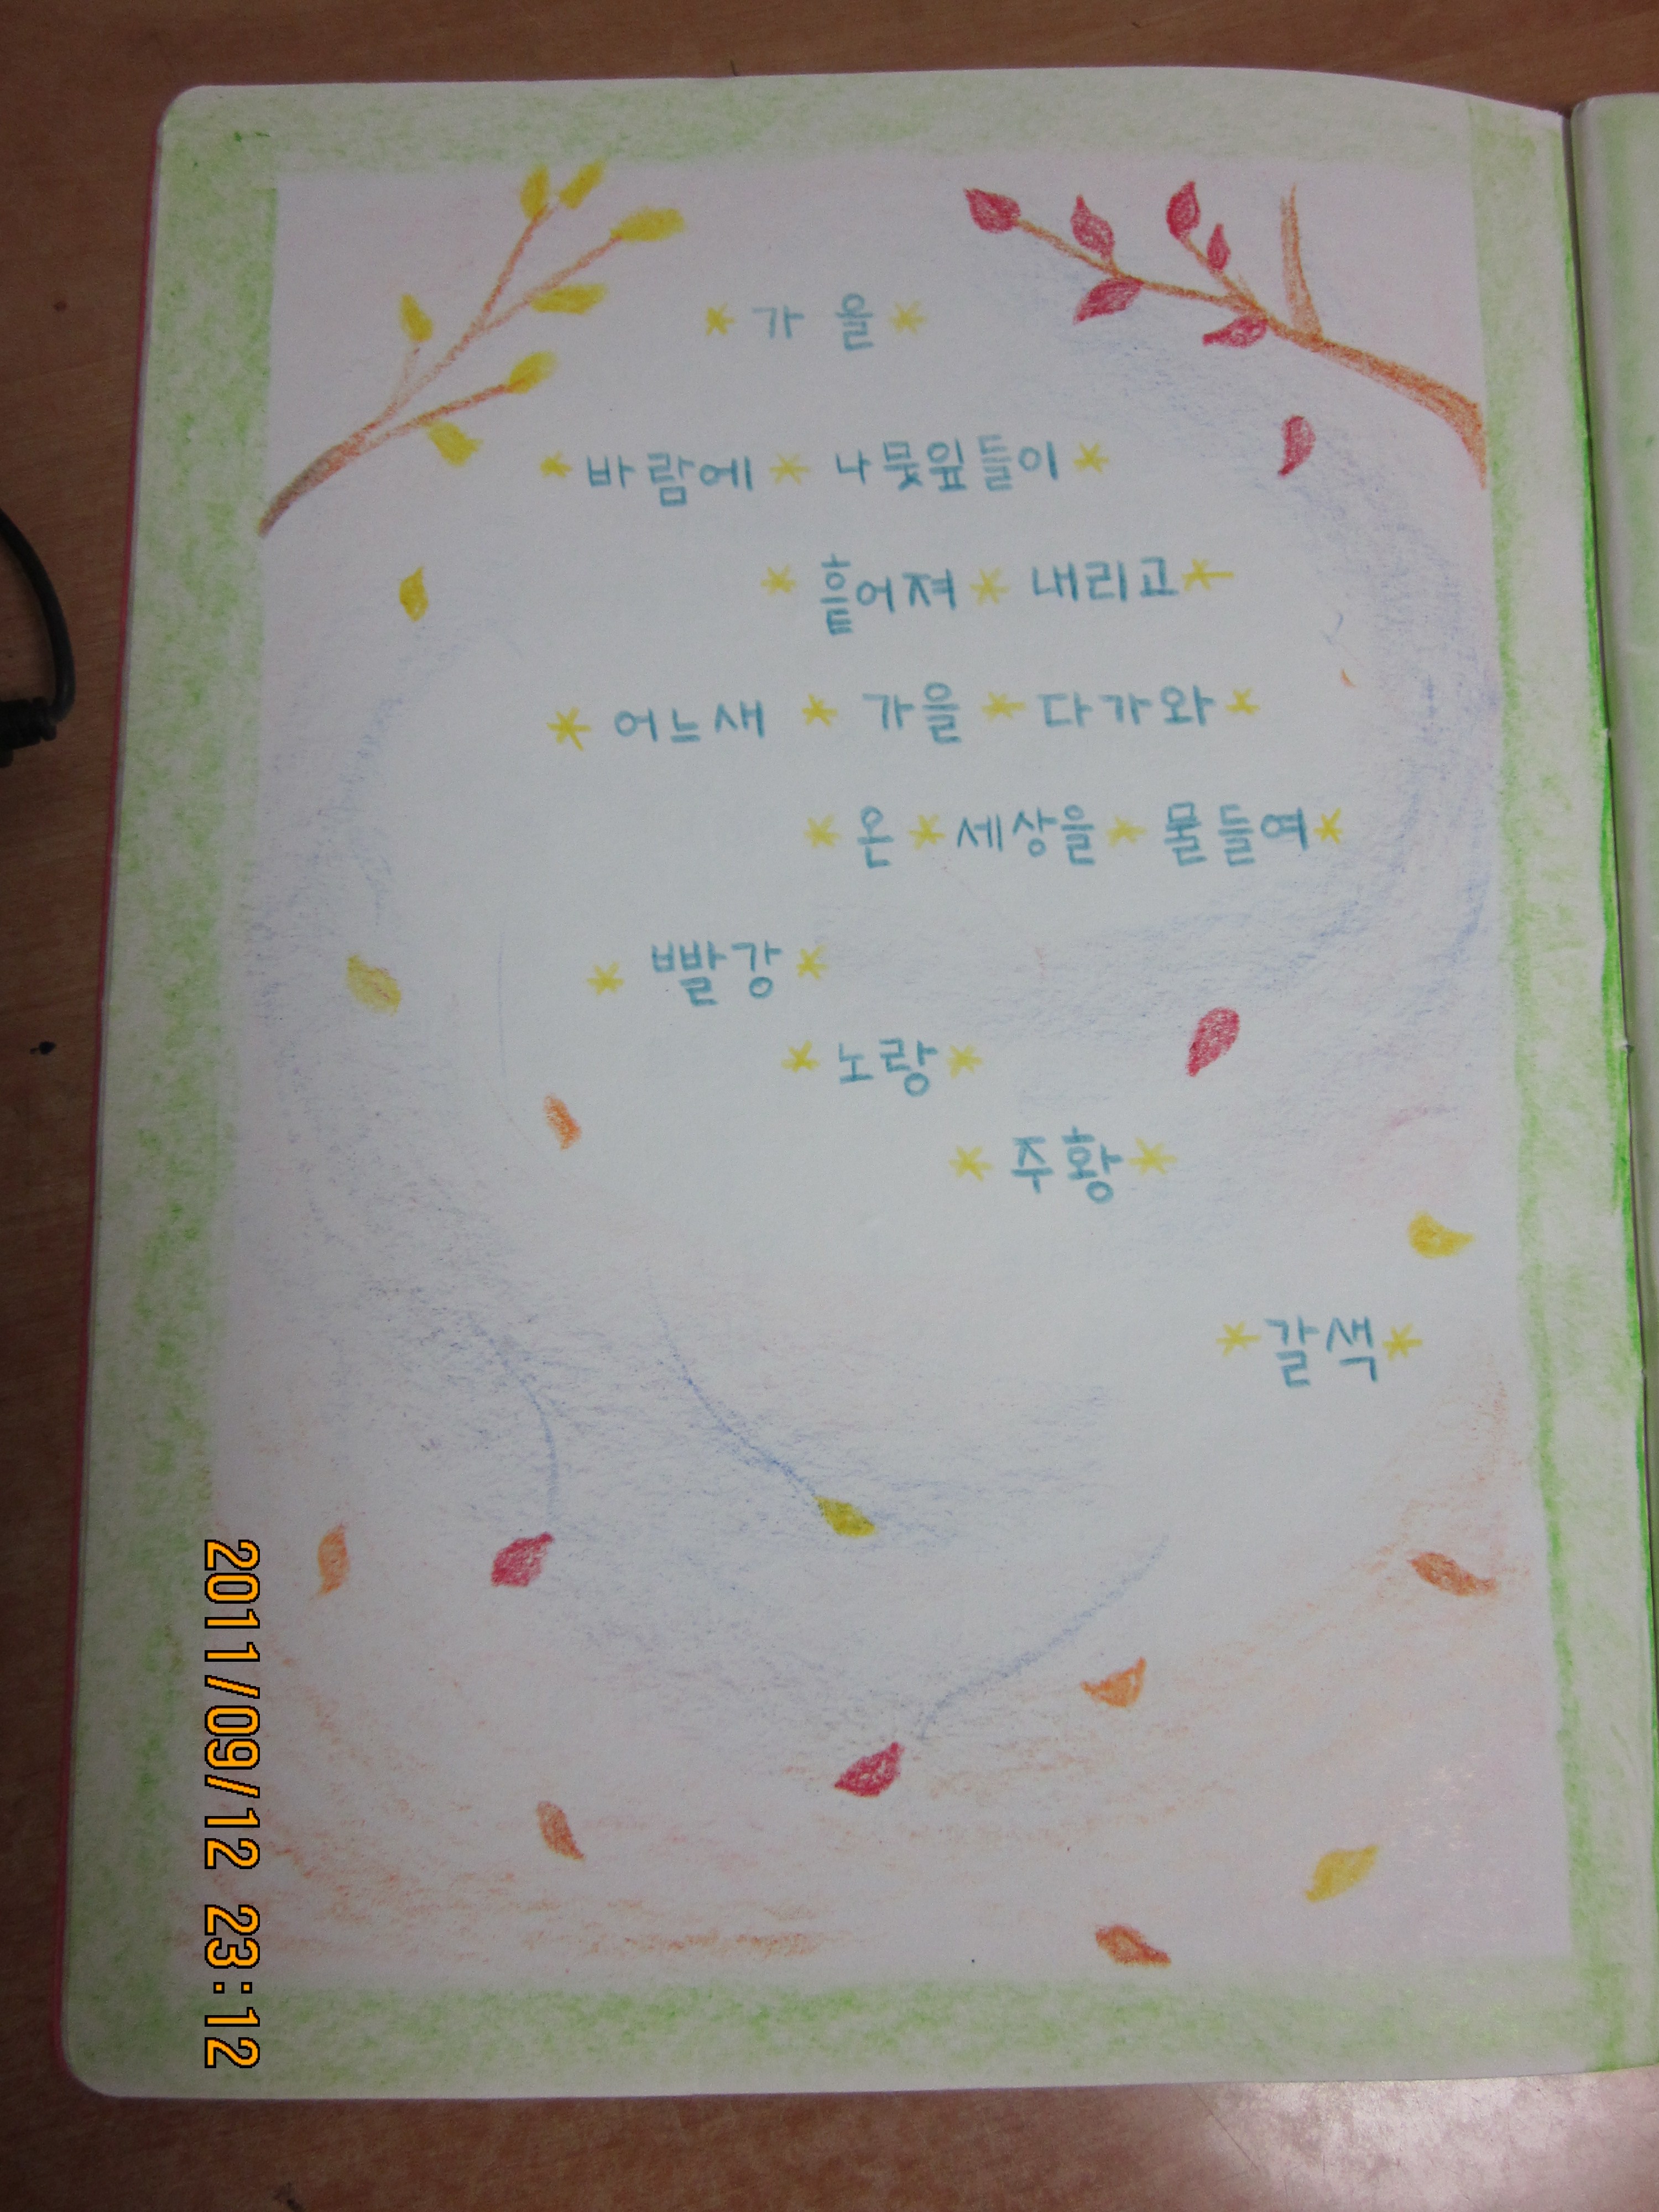 * 가을 *
* 바람에 * 나뭇잎들이 *
* 흩어져 * 내리고 *
* 어느새 * 가을 * 다가와 *
* 온 * 세상을 * 물들여 *
* 빨강 *
* 노랑 *
* 주황 *
* 갈색 *
2011/09/12 23:12